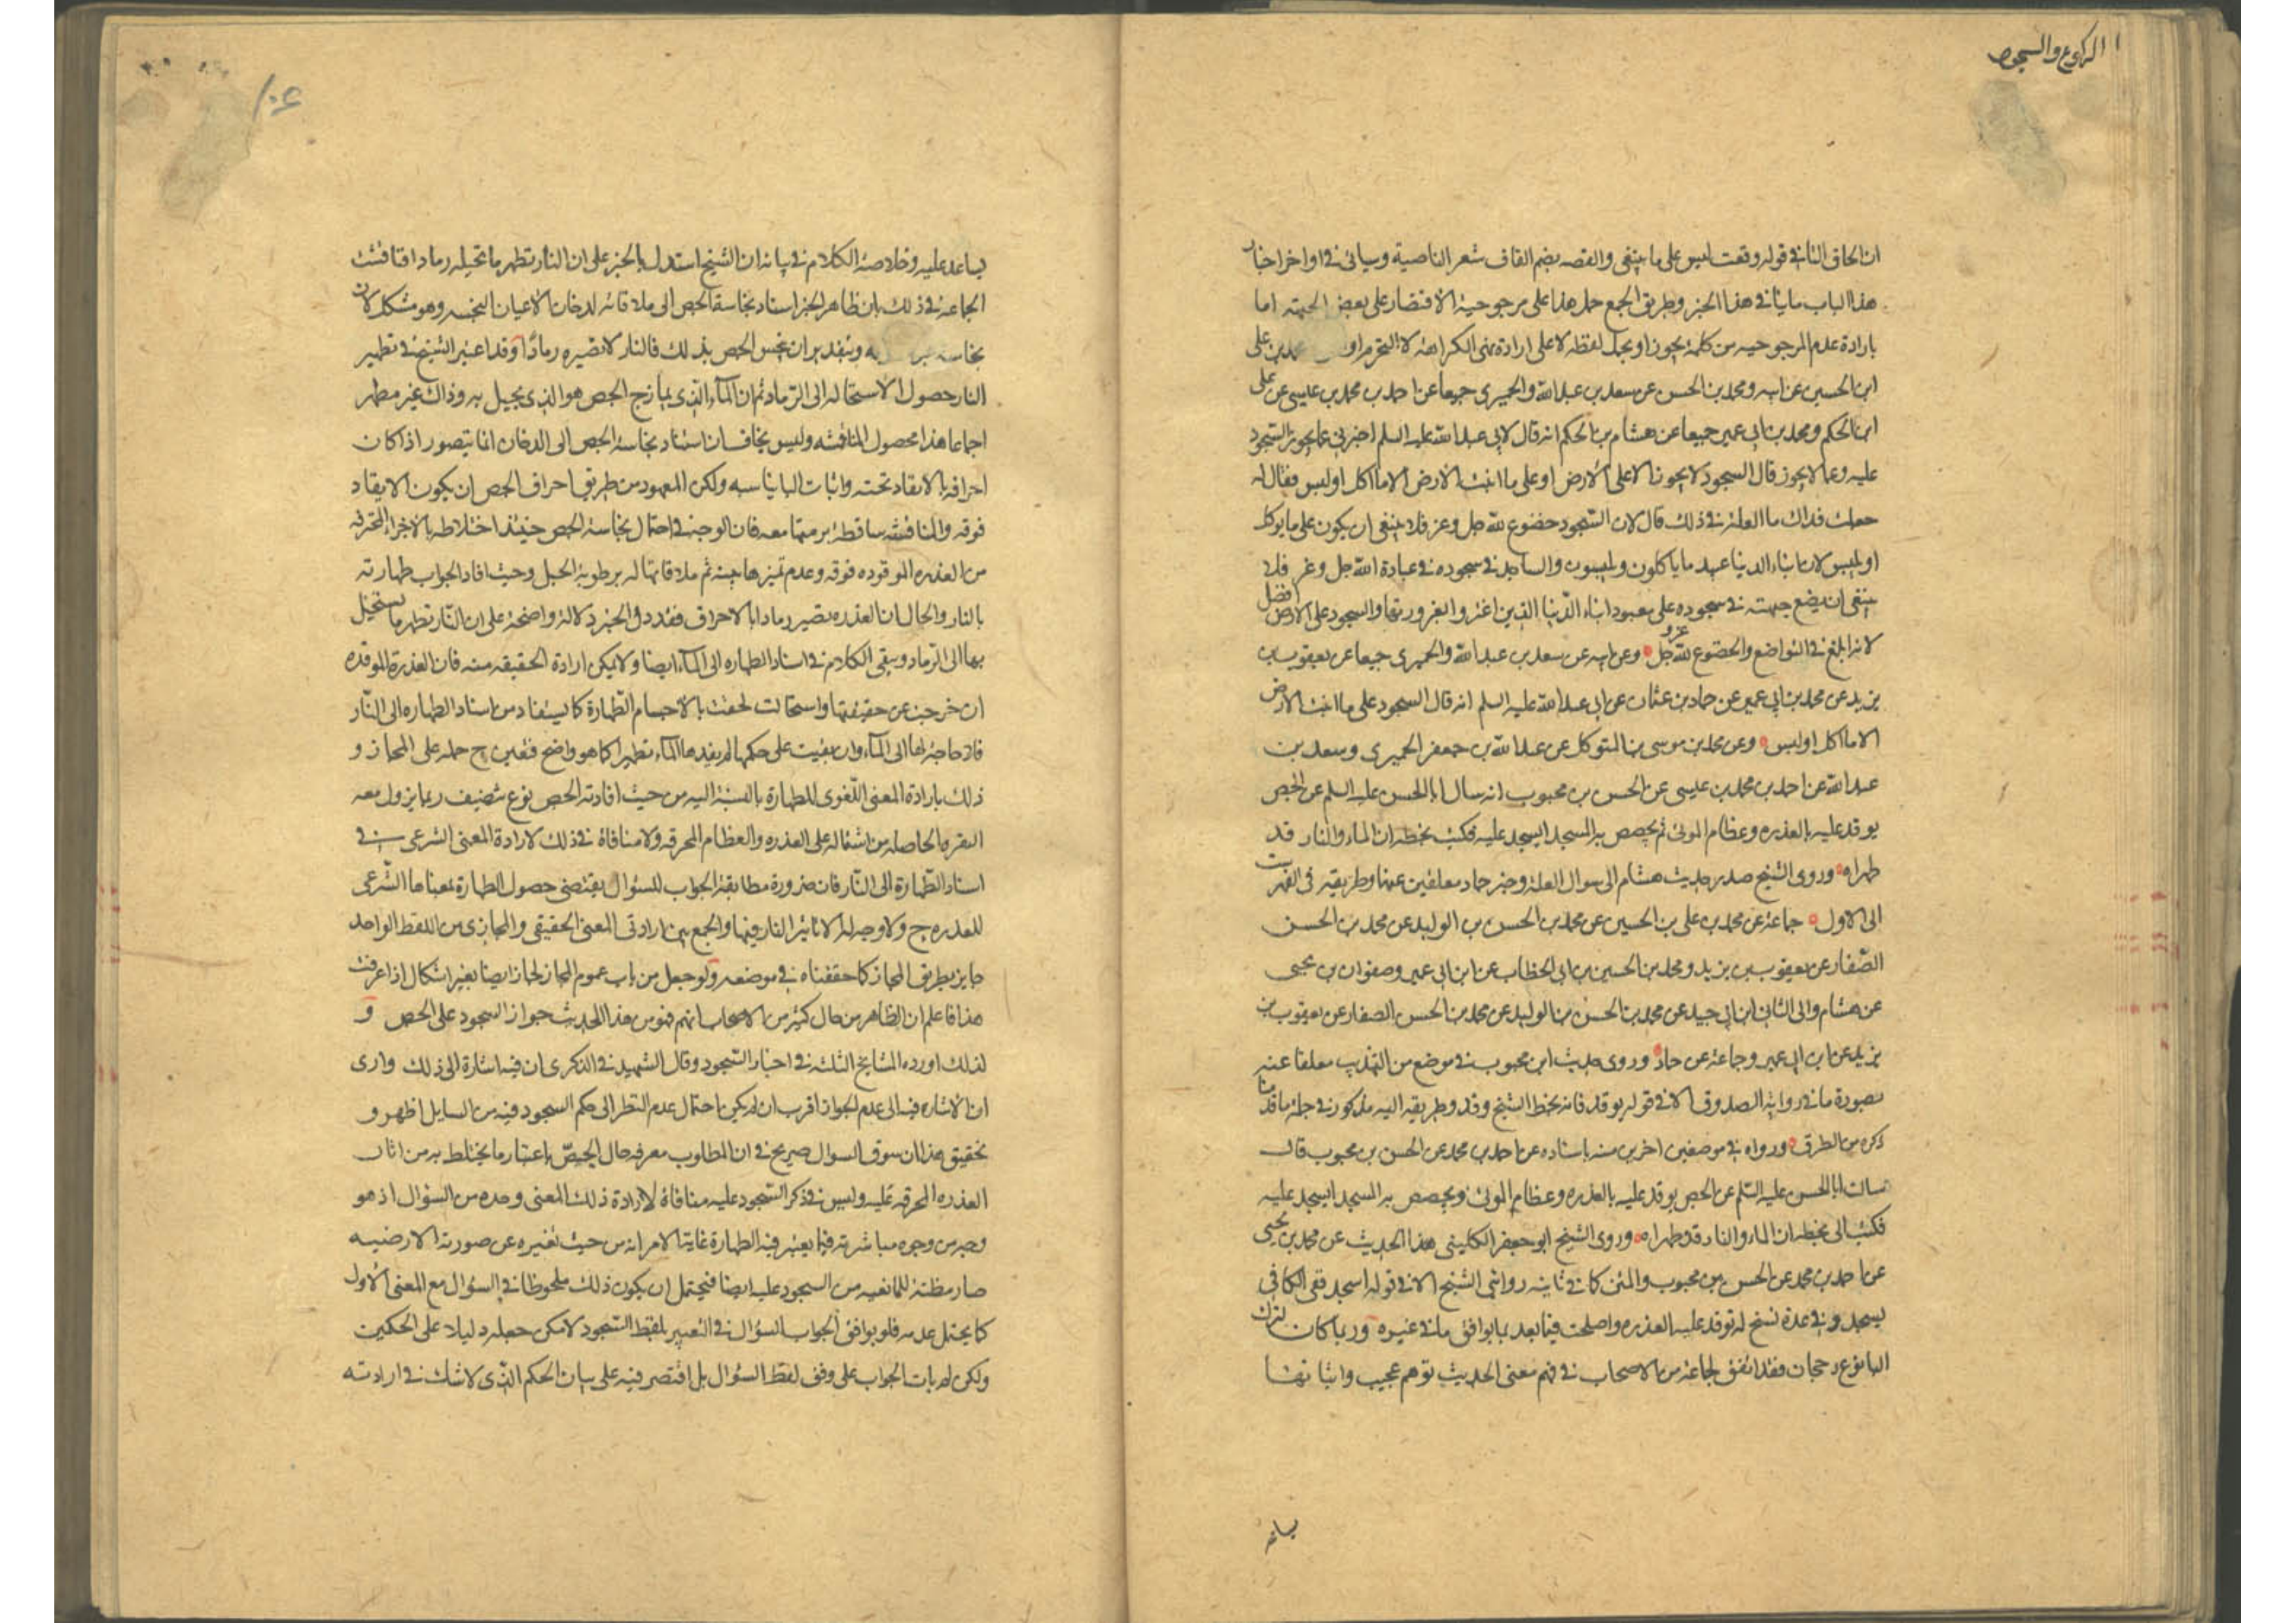 الركوع والسجود
ان الحاق التا في قوله وقعت ليس على ما ينبغي والقصه بضم القاف شعر الناصية وسياتي في اواخر اخبار
هذا الباب ما ينافي هذا الخبر وطريق الجمع حمل هذا على مرجوحية الاقتصار على بعض الجبهة اما
بارادة عدم المرجوحيه من كلمة يجوز او بحمل لفظه لا على ارادة معنى الكراهة لا التحريم محمد بن على
ابن الحسين عن ابيه ومحمد بن الحسن عن سعد بن عبد الله والحميري جميعا عن احمد بن محمد بن عيسى عن على
ابن الحكم ومحمد بن ابي عمير جميعا عن هشام بن الحكم انه قال لابي عبد الله عليه السلم اخبرني عما يجوز السجود
عليه وعما لا يجوز قال السجود لا يجوز الا على الارض او على ما انبتت الارض الا ما اكل او لبس فقال له
جعلت فداك ما العلة في ذلك قال لان السجود خضوع لله جل وعز فلا ينبغي ان يكون على ما يوكل
او يلبس لان ابناء الدنيا عبيد ما ياكلون ويلبسون والساجد في سجوده في عبادة الله جل وعز فلا
ينبغي ان يضع جبهته في سجوده على معبود ابناء الدنيا الذين اغتروا بغرورها والسجود على الارض افضل
لانه ابلغ في التواضع والخضوع لله عز و جل وعن ابيه عن سعد بن عبد الله والحميري جميعا عن يعقوب بن
يزيد عن محمد بن ابي عمير عن حماد بن عثمان عن ابي عبد الله عليه السلم انه قال السجود على ما انبتت الارض
الا ما اكل او لبس وعن محمد بن موسى بن المتوكل عن عبد الله بن جعفر الحميري وسعد بن
عبد الله عن احمد بن محمد بن عيسى عن الحسن بن محبوب انه سال ابا الحسن عليه السلم عن الجص
يوقد عليه بالعذره وعظام الموتى ثم يجصص به المسجد ايسجد عليه فكتب بخطه ان الماء والنار قد
طهراه وروى الشيخ صدر حديث هشام الى سوال العلة وخبر حماد معلقين عنهما وطريقه في الفهرست
الى الاول جماعة عن محمد بن على بن الحسين عن محمد بن الحسن بن الوليد عن محمد بن الحسن
الصفار عن يعقوب بن يزيد ومحمد بن الحسين بن ابي الخطاب عن ابن ابي عمير وصفوان بن يحيى
عن هشام والى الثاني ابن ابي جيد عن محمد بن الحسن بن الوليد عن محمد بن الحسن الصفار عن يعقوب بن
يزيد عن ابن ابي عمير وجماعة عن حماد وروى حديث ابن محبوب في موضع من التهذيب معلقا عنه
بصورة ما في رواية الصدوق الا في قوله يوقد فانه بخط الشيخ وقد وطريقه اليه مذكور في جملة ما قدمنا
ذكره من الطرق ورواه في موضعين اخرين منه باسناده عن احمد بن محمد عن الحسن بن محبوب قال
سالت ابا الحسن عليه السلم عن الجص يوقد عليه بالعذره وعظام الموتى ويجصص به المسجد ايسجد عليه
فكتب الى بخطه ان الماء والنار قد طهراه وروى الشيخ ابو جعفر الكليني هذا الحديث عن محمد بن يحيى
عن احمد بن محمد عن الحسن بن محبوب والمتن كما في ثانيه روايتي الشيخ الا في قوله اسجد ففي الكافي
يسجد وفي عدة نسخ له توقد عليه العذره واصلحت فيما بعد بما يوافق ما في غيره وربما كان لترك
الباء نوع رجحان فقد اتفق لجماعة من الاصحاب في فهم معنى الحديث توهم عجيب واثباتها
يساعد
يساعد عليه وخلاصة الكلام في بيانه ان الشيخ استدل بالخبر على ان النار تطهر ما تحيله رمادا فناقشت
الجماعة في ذلك بان ظاهر الخبر اسناد نجاسة الجص الى ملاقاته لدخان الاعيان النجسه وهو مشكل لان
وبتقدير ان نجس الجص بذلك فالنار لا تصيره رمادا وقد اعتبر الشيخ في تطهير
النار حصول الاستحاله الى الرماد ثم ان الماء الذي يمازج الجص هو الذي يحيل به وذاك غير مطهر
اجماعا هذا محصول المناقشه وليس بخاف ان اسناد نجاسة الجص الى الدخان انما يتصور اذا كان
احراقه بالايقاد تحته واثبات البا يناسبه ولكن المعهود من طريق احراق الجص ان يكون الايقاد
فوقه والمناقشه ساقطة برمتها معه فان الوجه في احتمال نجاسة الجص حينئذ اختلاطه بالاجزاء المحترقه
من العذره الموقوده فوقه وعدم تميزها منه ثم ملاقاتها له برطوبة الحبل وحيث افاد الجواب طهارته
بالنار والحال ان العذره تصير رمادا بالاحراق فقد دل الخبر دلالة واضحة على ان النار تطهر ما يستحيل
بها الى الرماد وبقى الكلام في اسناد الطهاره الى الماء ايضا ولا يمكن ارادة الحقيقه منه فان العذرة الموقده
ان خرجت عن حقيقتها واستحالت لحقت بالاجسام الطاهرة كما يستفاد من اسناد الطهاره الى النار
فلا حاجة لها الى الماء وان بقيت على حكمها لم يفدها الماء تطهيرا كما هو واضح فتعين ح حمله على المجاز و
ذلك بارادة المعنى اللغوي للطهارة بالنسبة اليه من حيث افادته الجص نوع تنظيف ربما يزول معه
النفره الحاصله من اشتماله على العذره والعظام المحرقه ولا منافاة في ذلك لارادة المعنى الشرعي في
اسناد الطهارة الى النار فان ضرورة مطابقة الجواب للسؤال يقتضي حصول الطهارة بمعناها الشرعي
للعذره ح ولا وجه له الا تاثير النار فيها والجمع بين ارادتي المعنى الحقيقي والمجازي من اللفظ الواحد
جايز بطريق المجاز كما حققناه في موضعه ولو جعل من باب عموم المجاز لجاز ايضا بغير اشكال اذا عرفت
هذا فاعلم ان الظاهر من حال كثير من الاصحاب انهم فهموا من هذا الحديث جواز السجود على الجص و
لذلك اورده المشايخ الثلثه في اخبار السجود وقال الشهيد في الذكرى ان فيه اشارة الى ذلك وارى
ان الاشاره فيه الى عدم الجواز اقرب ان لم يكن احتمال عدم النظر الى حكم السجود فيه من السايل اظهر و
تحقيق هذا ان سوق السوال صريح في ان المطلوب معرفه حال الجص باعتبار ما يختلط به من اثار
العذره المحرقه عليه وليس في ذكر السجود عليه منافاة لارادة ذلك المعنى وحده من السؤال اذ هو
وجه من وجوه مباشرته فيما يعتبر فيه الطهارة غاية الامر انه من حيث تغيره عن صورته الارضيه
صار مظنة للمانعيه من السجود عليه ايضا فيحتمل ان يكون ذلك ملحوظا في السؤال مع المعنى الاول
كما يحتمل عدمه فلو يوافق الجواب السؤال في التعبير بلفظ السجود لامكن جعله دليلا على الحكمين
ولكن لم يات الجواب على وفق لفظ السؤال بل اقتصر فيه على بيان الحكم الذي لا شك في ارادته